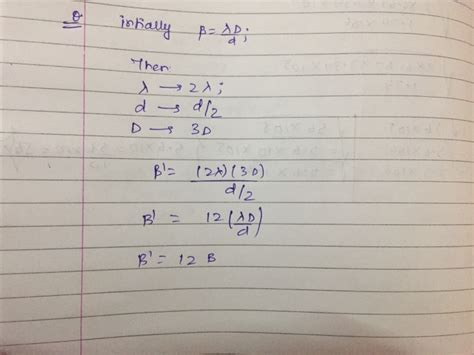 Q initially β = λD/d;
Then
λ → 2λ;
d → d/2
D → 3D
B' = (2λ)(3D)/d/2
B' = 12 (λD/d)
B' = 12 B